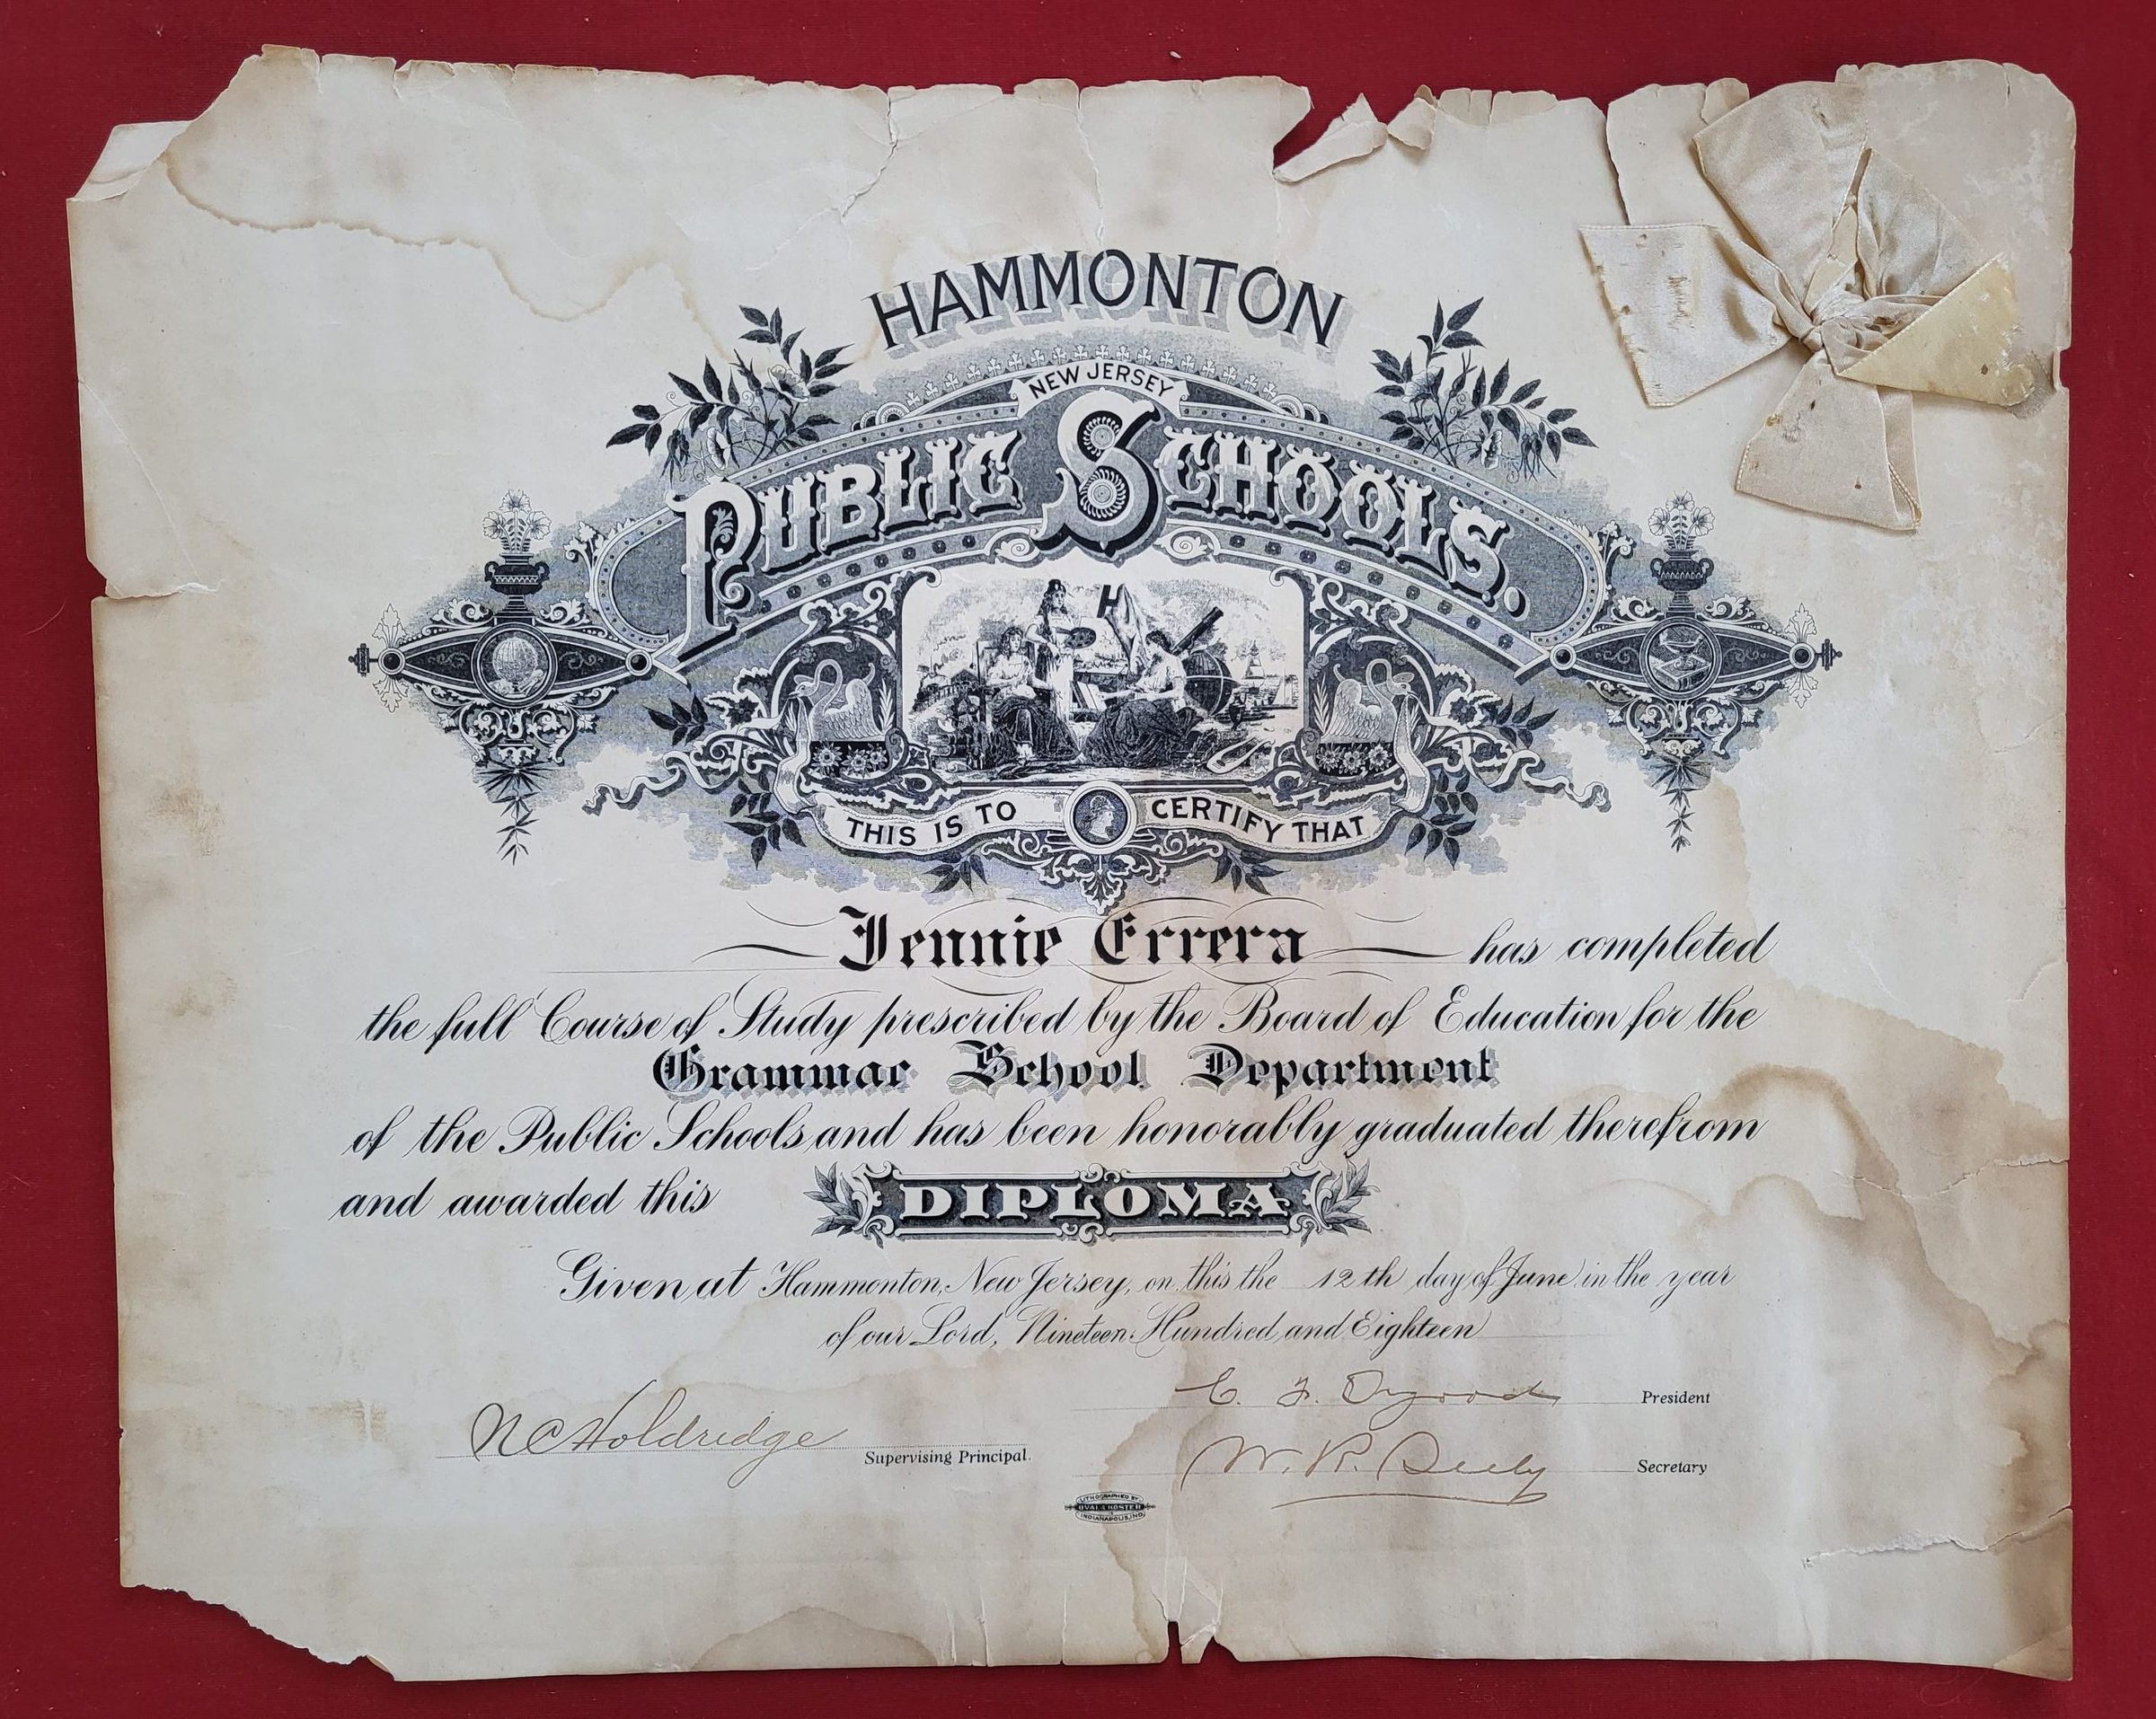 HAMMONTON
NEW JERSEY
PUBLIC SCHOOLS.
THIS IS TO CERTIFY THAT
Jennie Errera has completed
the full Course of Study prescribed by the Board of Education for the
Grammar School Department
of the Public Schools and has been honorably graduated therefrom
and awarded this DIPLOMA
Given at Hammonton, New Jersey, on this the 12th day of June in the year
of our Lord, Nineteen Hundred and Eighteen
C. F. Osgood President
N C Holdridge Supervising Principal.
W. R. Seely Secretary
LITHOGRAPHED BY
OVAL & KOSTER
INDIANAPOLIS, IND.